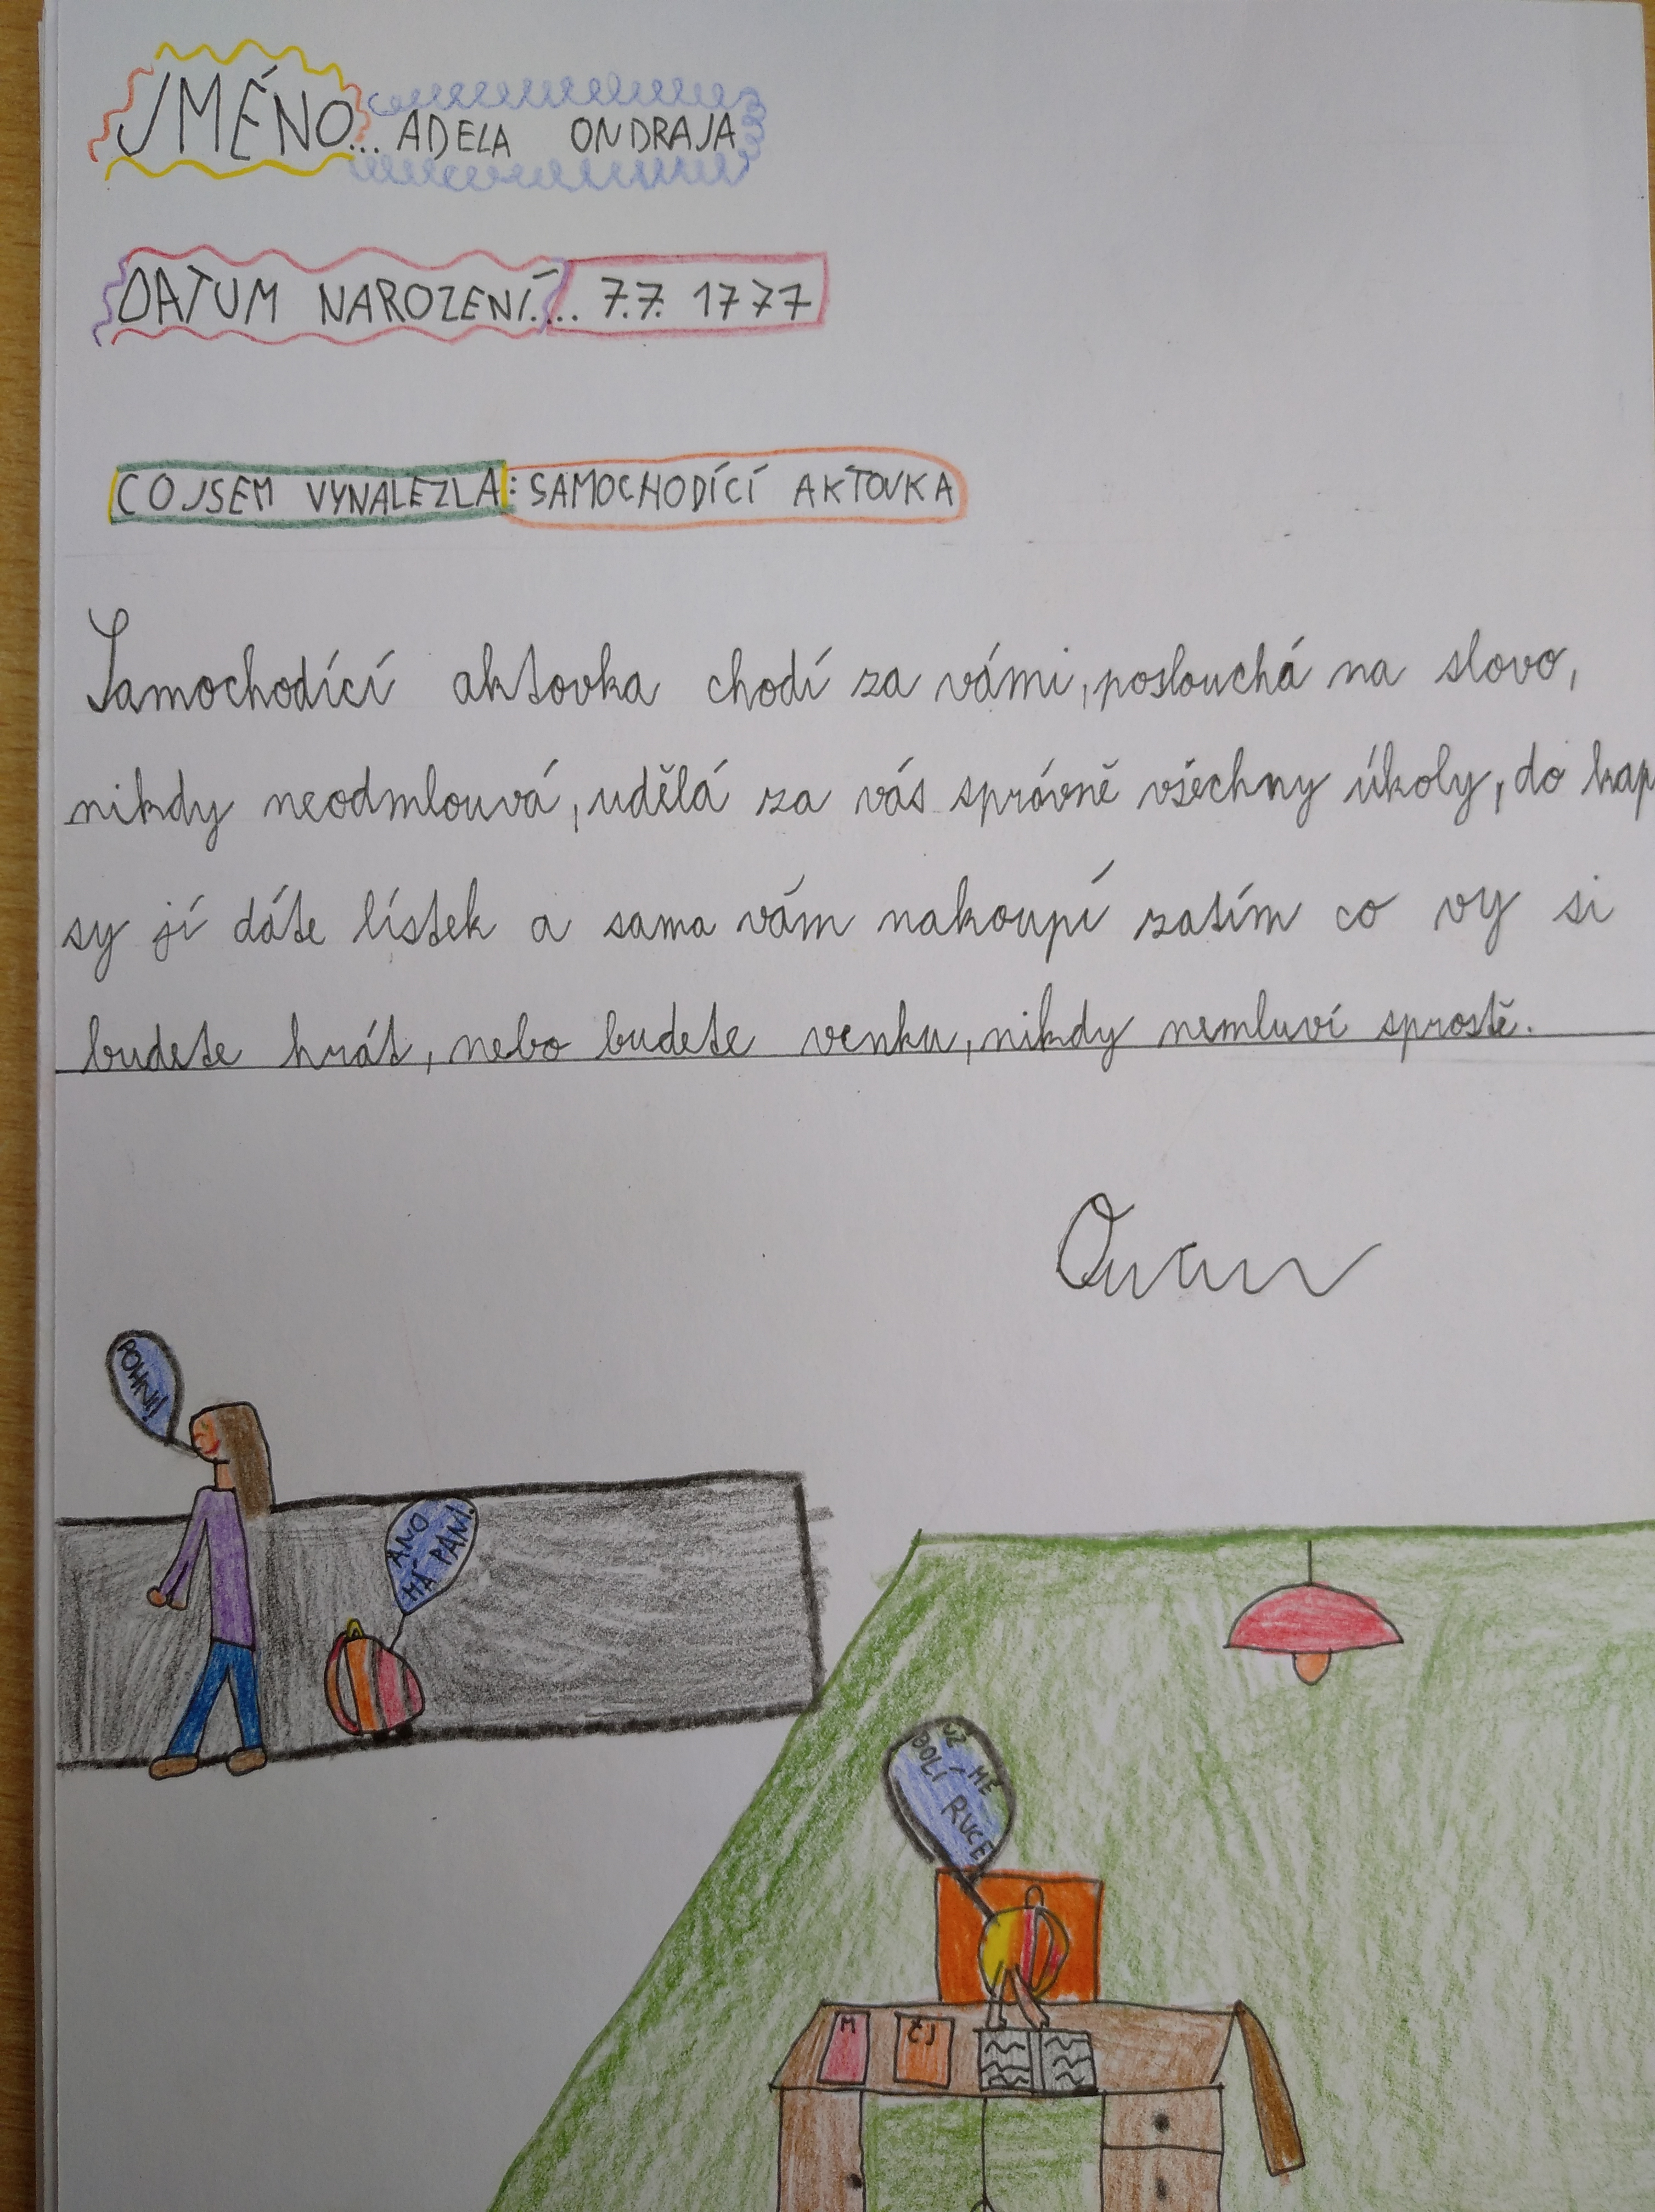 JMÉNO... ADELA ONDRAJA
DATUM NAROZENÍ.... 7.7. 1777
CO JSEM VYNALEZLA: SAMOCHODÍCÍ AKTOVKA
Samochodící aktovka chodí za vámi, poslouchá na slovo,
nikdy neodmlouvá, udělá za vás správně všechny úkoly, do kap
sy jí dáte lístek a sama vám nakoupí zatím co vy si
budete hrát, nebo budete venku, nikdy nemluví sprostě.
POHNI!
ANO
MÁ PANÍ.
UŽ MĚ
BOLÍ RUCE
M
ČJ